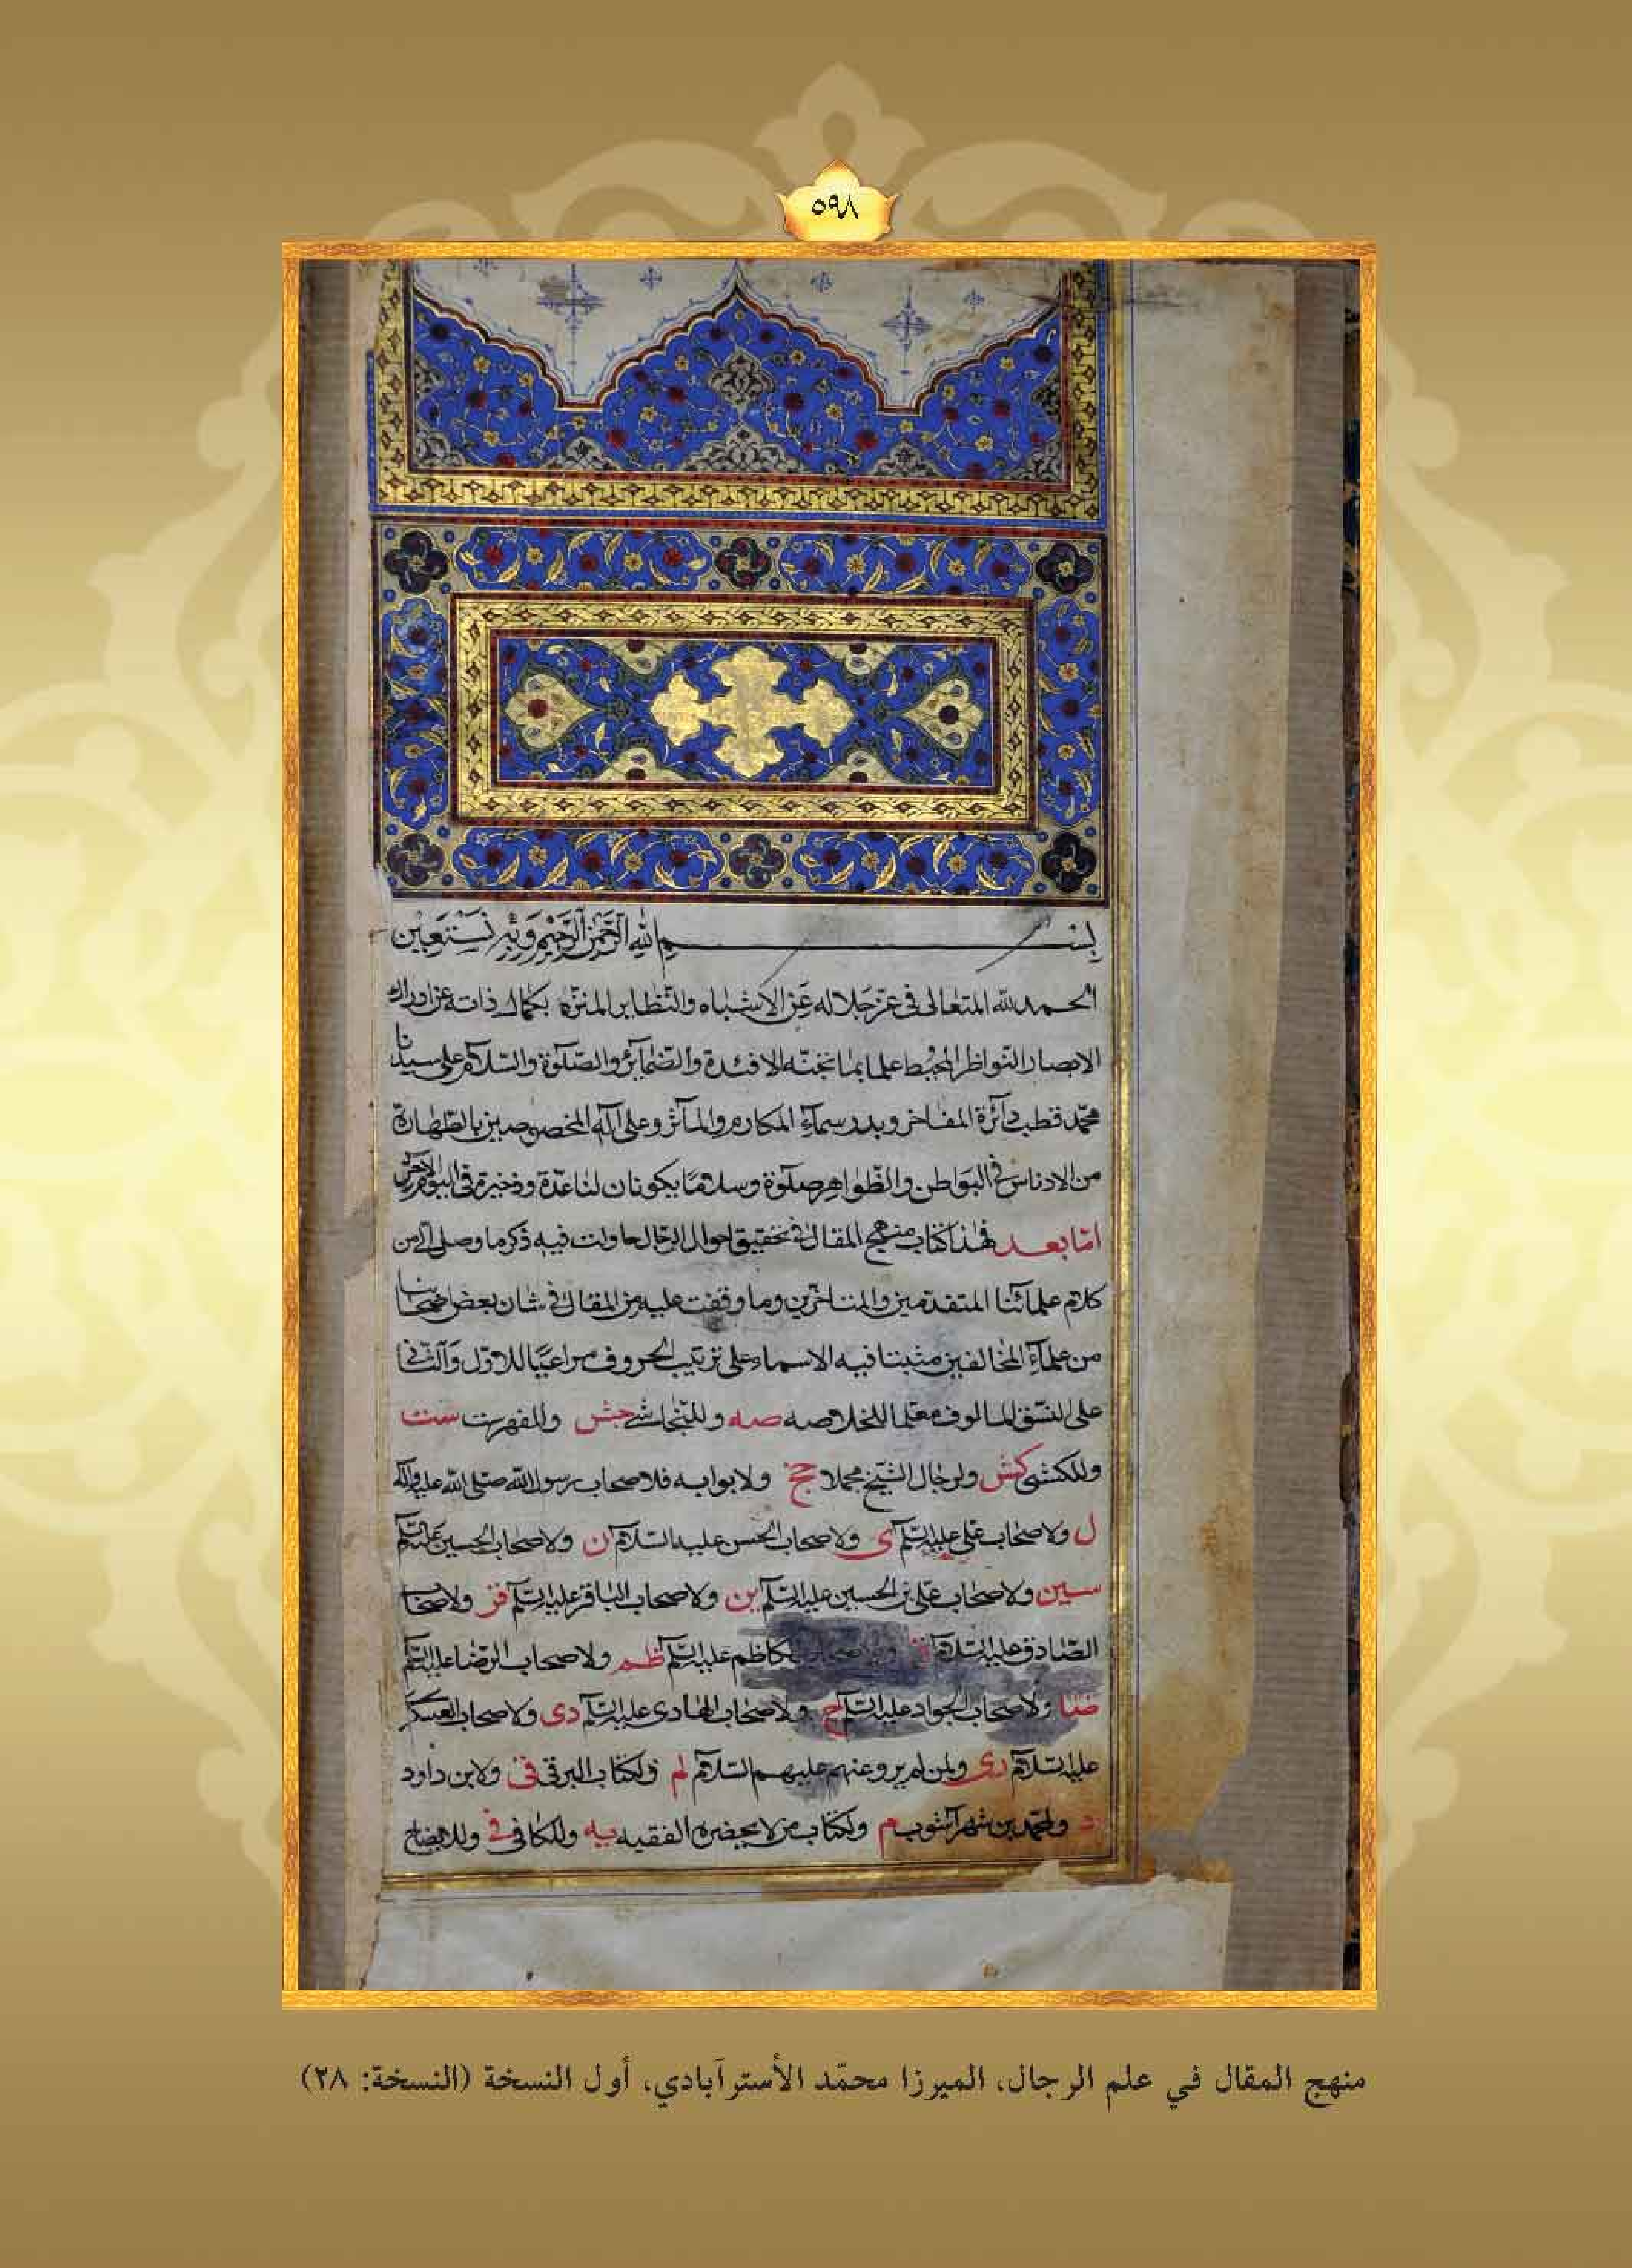 ٥٩٨
بسم الله الرحمن الرحيم وبه نستعين
الحمد لله المتعالى في عز جلاله عن الاشباه والنظاير المنزه بكمال ذاته عن ادراك
الابصار النواظر المحيط علما بما تجنه الافئدة والضمآئر والصلوة والسلام على سيدنا
محمد قطب دآئرة المفاخر وبدر سمآء المكارم والمآثر وعلى آله المخصوصين بالطهارة
من الادناس في البواطن والظواهر صلوة وسلاما يكونان لنا عدة وذخيرة في اليوم الآخر
اما بعد فهذا كتاب منهج المقال في تحقيق احوال الرجال حاولت فيه ذكر ما وصل الى من
كلام علمائنا المتقدمين والمتاخرين وما وقفت عليه من المقال في شان بعض اصحابنا
من علمآء المخالفين مثبتا فيه الاسماء على ترتيب الحروف مراعيا للاول والثاني
على النسق المالوف معلما للخلاصه صه وللنجاشي جش وللفهرست ست
وللكشي كش ولرجال الشيخ مجملا جخ ولابوابه فلاصحاب رسول الله صلى الله عليه وآله
ل ولاصحاب على عليه السلم ى ولاصحاب الحسن عليه السلام ن ولاصحاب الحسين عليه السلم
سين ولاصحاب على بن الحسين عليه السلم ين ولاصحاب الباقر عليه السلم قر ولاصحاب
الصادق عليه السلام ق ولاصحاب الكاظم عليه السلم ظم ولاصحاب الرضا عليه السلم
ضا ولاصحاب الجواد عليه السلم ج ولاصحاب الهادى عليه السلم دى ولاصحاب العسكرى
عليه السلام رى ولمن لم يرو عنهم عليهم السلام لم ولكتاب البرقى قى ولابن داود
د ولمحمد بن شهرآشوب م ولكتاب من لا يحضره الفقيه يه وللكافى فى وللايضاح
منهج المقال في علم الرجال، الميرزا محمّد الأسترآبادي، أول النسخة (النسخة: ٢٨)